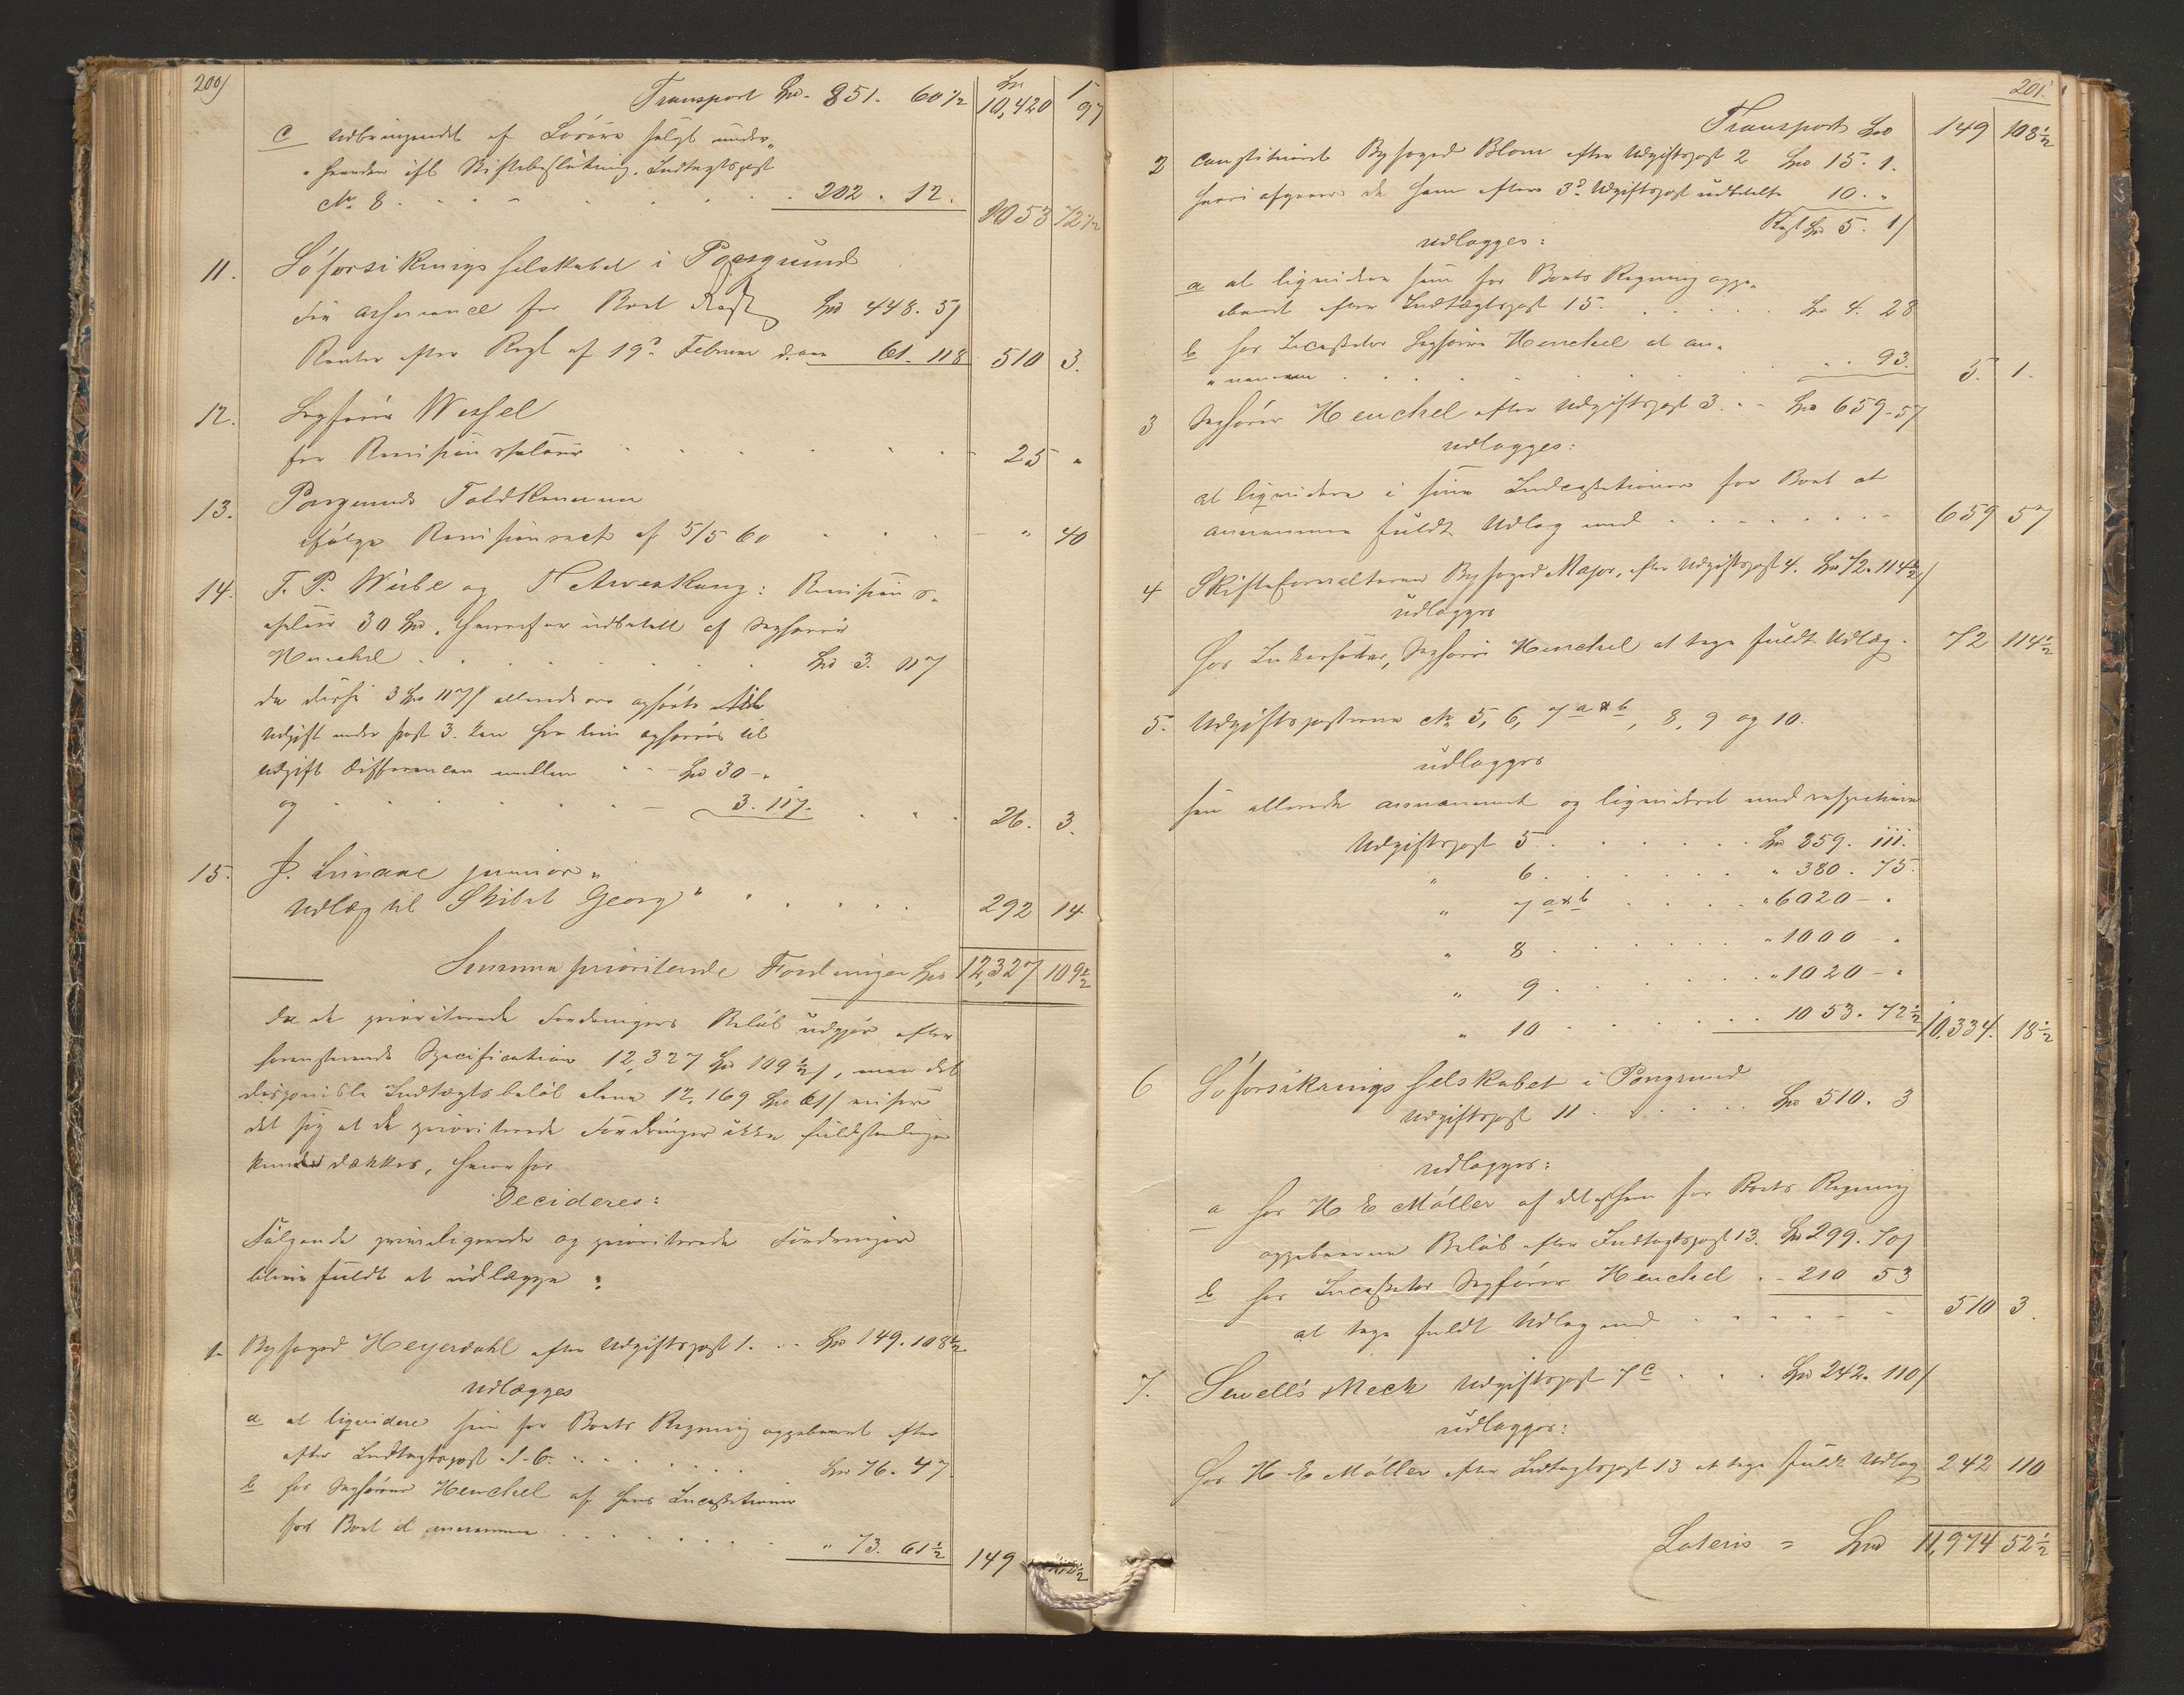 200/
Transport Spd. 851. 60½ Spd. 10,420 ſ 97
c Udbringendet af Løsøre solgt under
hænden ifl. Skiftebeslutning. Indtægtspost
No. 8 . . . 202 . 12. 1053 72½
11. Søforsikringsselskabet i Porsgrund
for Assurance for Boet Rest Spd 448. 5ſ
Renter efter Regl af 19de Februar d. aa 61. 118 510 3.
12. Sagfører Wessel
for Revisionssalair . . . 25 "
13. Porsgrunds Toldkammer
ifølge Revisionsact af 5/5 60 . . . " 40
14. T. P. Wiibe og T Atverskaug: Revisions-
salair 30 Spd. hvorefter udbetalt af Sagfører
Henchel . . . Spd 3. 117
da disse 3 Spd 117ſ allerede ere opførte til
Udgift under post 3. kan her kun opføres til
udgift differencen mellem . . Spd 30 - "
og . . . 3. 117. . . . 26. 3.
15. J. Linaae junior
Udlæg til Skibet Georg " . . . 292 14
Summa prioriterede Fordringer Spd 12,327 109½
Da de prioriterede Fordringers Beløb udgjør efter
foranstaaende Specification 12,327 Spd 109½ſ, men det
disponible Indtægtsbeløb alene 12,169 Spd 61ſ viser
det sig at de prioriterede Fordringer ikke fuldstændigen
kunde dækkes, hvorfor
Decideres:
Følgende privilegerede og prioriterede Fordringer
blive fuldt at udlægge:
1. Byfoged Heyerdahl efter Udgiftspost 1. . . Spd 149. 108½
udlægges
a at liqvidere sine for Boets Regning oppebaaret efter
efter Indtægtspost 1-6. . . . Spd 76. 47
b hos Sagfører Henchel af hans Incassationer
for Boet at annamme . . . " 73. 61½ 149 108½
201.
Transport Spd 149 108½
2 Constitueret Byfoged Blom efter Udgiftspost 2 Spd 15. 1.
heri afgaaer de ham efter 3de Udgiftspost udbetalte 10. "
Rest Spd 5. 1ſ
udlægges:
a at liqvidere sine for Boets Regning oppe-
baaret efter Indtægtspost 15. . . . Spd 4. 28
b hos Incassator Sagfører Henchel at an-
namme . . . 93. 5. 1.
3 Sagfører Henchel efter Udgiftspost 3. . . Spd 659 - 57
udlægges:
at liqvidere i sine Indcassationer for Boet at
annamme fuldt Udlæg med . . . 659 57
4 Skifteforvalteren Byfoged Major, efter Udgiftspost 4. Spd 72. 114½ſ
udlægges
hos Inkassator, Sagfører Henchel at tage fuldt Udlæg. 72 114½
5. Udgiftsposterne No 5, 6, 7 a & b, 8, 9 og 10.
udlægges
som allerede annammet og liqvideret med respective
Udgiftspost 5. . . . Spd 859. 111.
" 6. . . . " 380. 75.
" 7 a & b . . . " 6020 - "
" 8 . . . " 1000 - "
" 9 . . . " 1020 - "
" 10 . . . 1053. 72½ 10,334. 18½
6 Søforsikrings Selskabet i Porsgrund
Udgiftspost 11 . . . Spd 510. 3
udlægges:
a hos H E Møller af det af ham for Boets Regning
oppebaarne Beløb efter Indtægtspost 13. Spd 299. 70ſ
b hos Incassator Sagfører Henchel . - 210 53
at tage fuldt Udlæg med . . . 510 3.
7. Sewell & Neck Udgiftspost 7 c . . . Spd 242. 110ſ
udlægges:
hos H E Møller efter Indtægtspost 13 at tage fuldt Udlæg 242 110
Lateris = Spd 11,974 52½